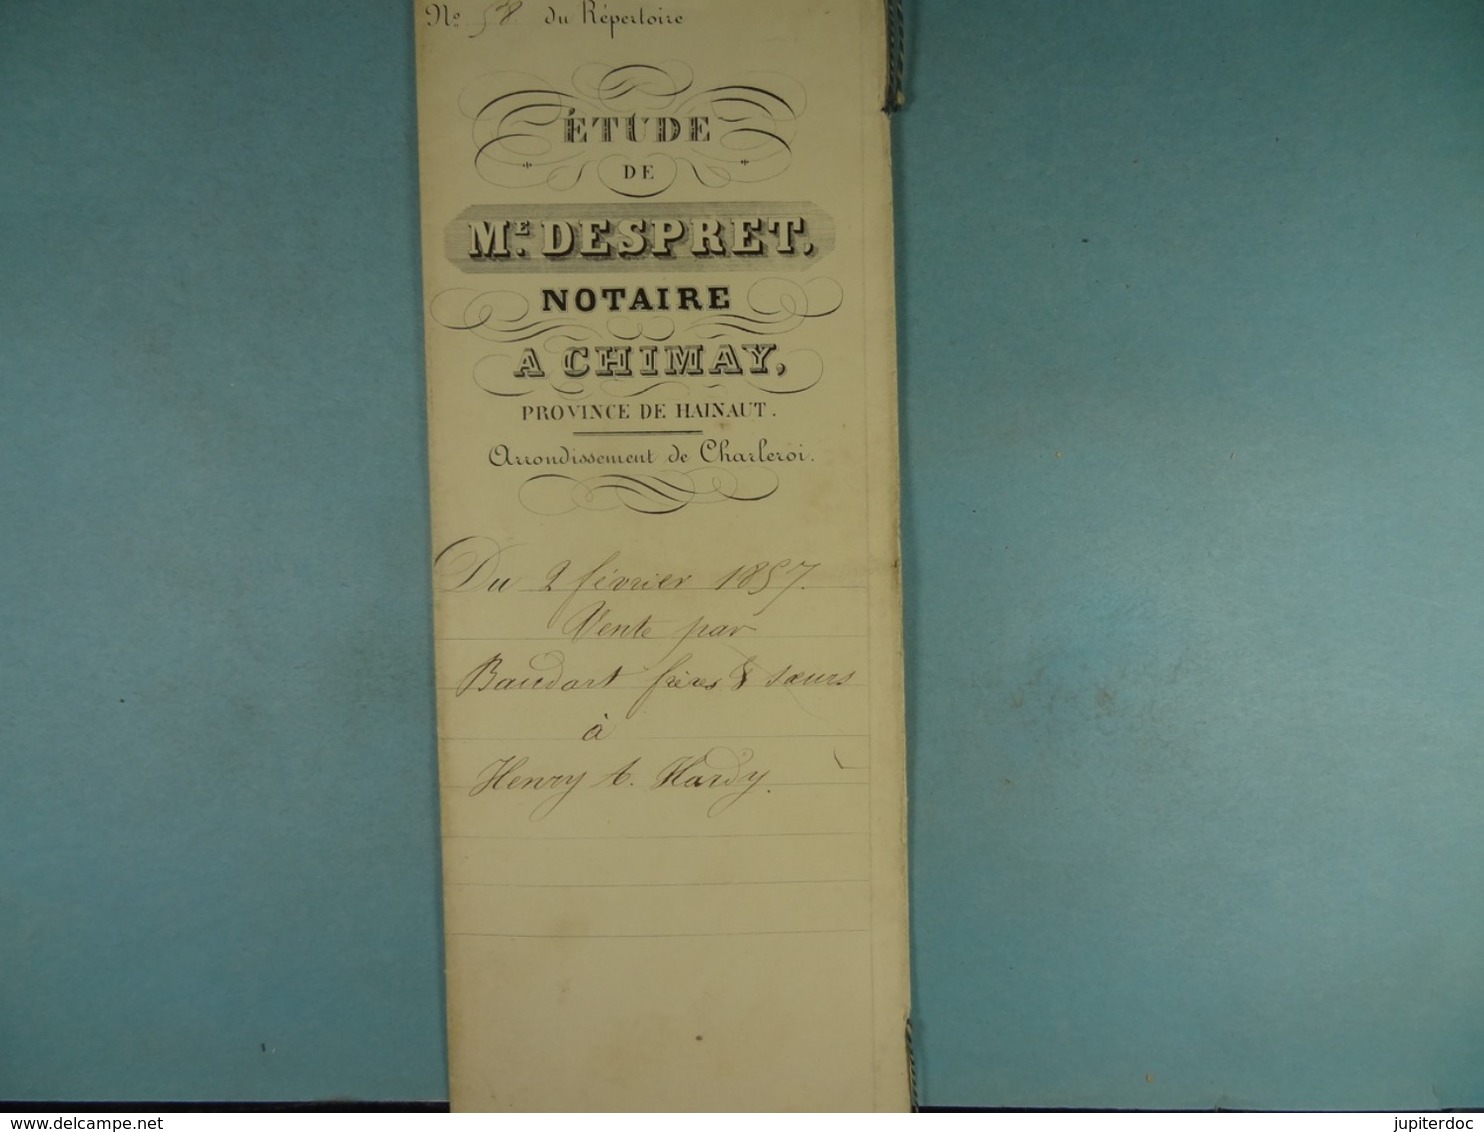 Nº 58 du Répertoire
ÉTUDE
DE
ME. DESPRET,
NOTAIRE
A CHIMAY,
PROVINCE DE HAINAUT.
Arrondissement de Charleroi.
Du 2 février 1857.
Vente par
Baudart frères & sœurs
à
Henry t. Hardy.
www.delcampe.net
jupiterdoc